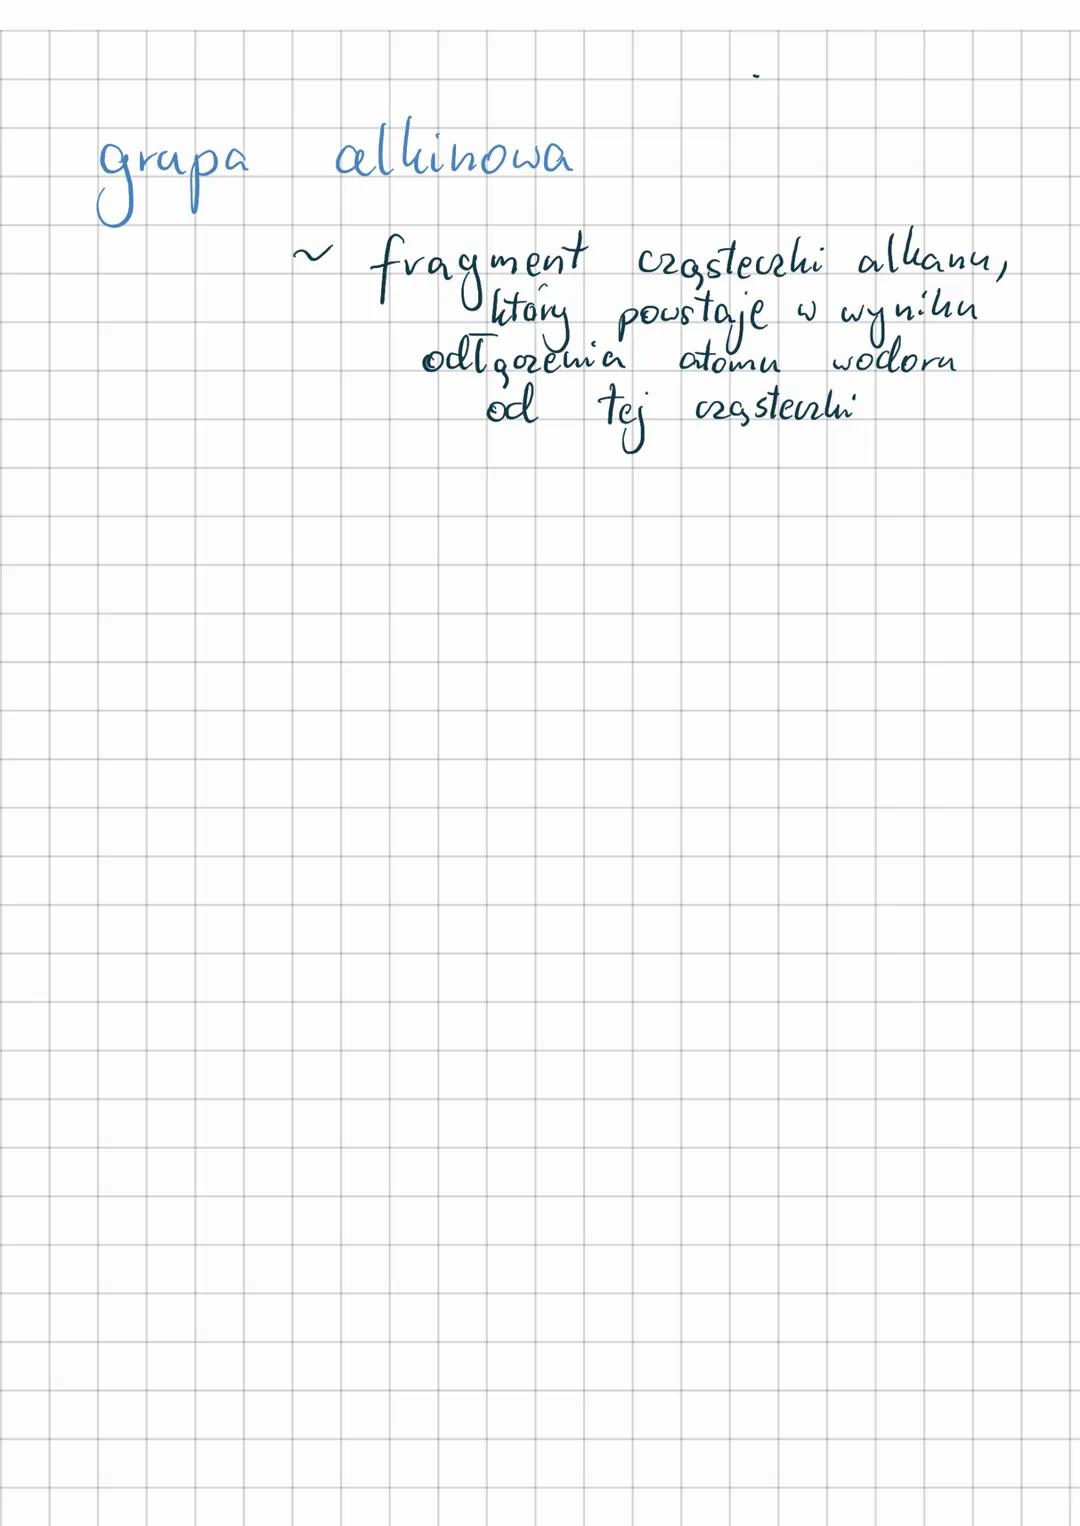 grupa alkinowa
~ fragment cząsteczki alkanu,
który powstaje w wyniku
odłączenia atomu wodoru
od tej cząsteczki